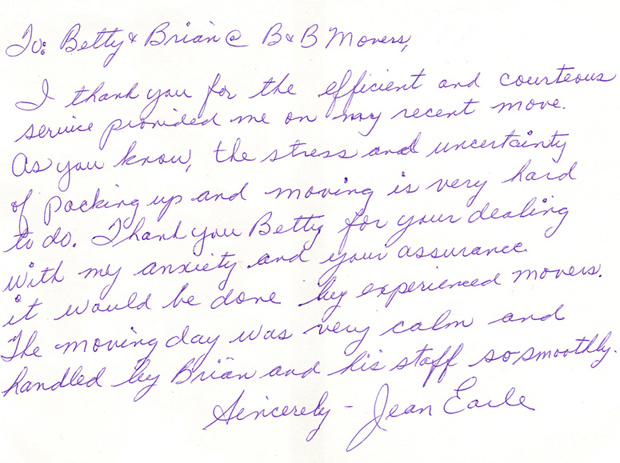 To: Betty & Brian @ B & B Movers,
I thank you for the efficient and courteous
service provided me on my recent move.
As you know, the stress and uncertainty
of packing up and moving is very hard
to do. Thank you Betty for your dealing
with my anxiety and your assurance
it would be done by experienced movers.
The moving day was very calm and
handled by Brian and his staff so smoothly.
Sincerely - Jean Earle